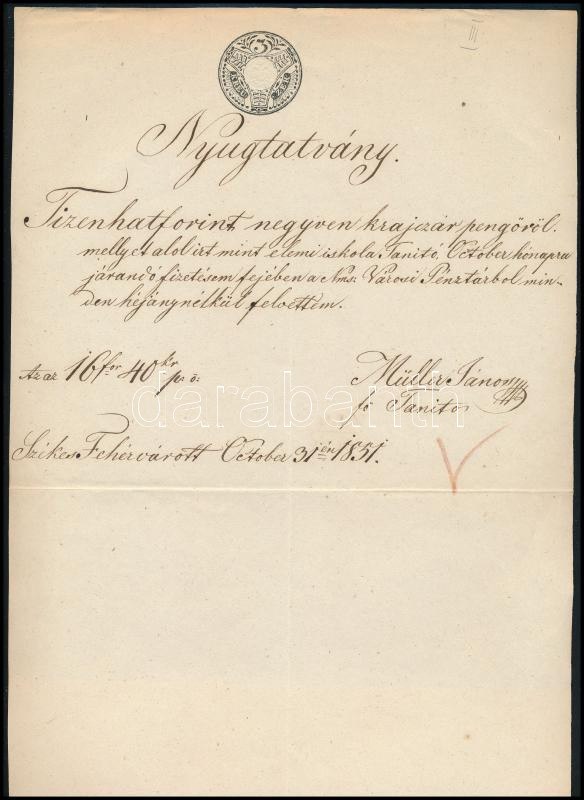 III
3
KREU ZER
Nyugtatvány.
Tizenhat forint negyven krajczár pengöröl
mellyet alol irt mint elemi iskola Tanitó, October hónapra
járandó fizetésem fejében a Nms: Városi Pénztárbol min-
den héjány nélkül felvettem.
Az az 16 for 40 kr p: ö:
Müller János
fö Tanito
Székes Fehérvárott October 31én 1851.
darabanth.com